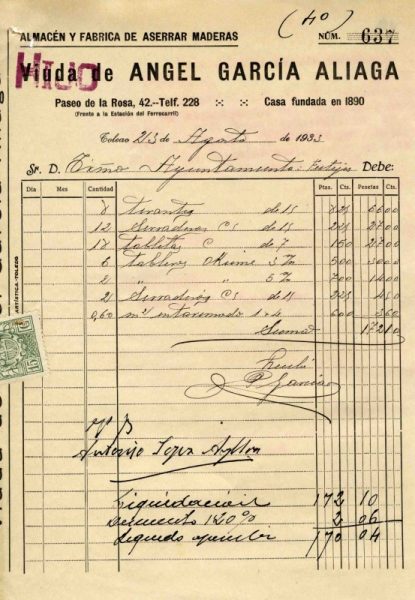 (4º)
ALMACÉN Y FABRICA DE ASERRAR MADERAS NÚM. 637
HIJO
Viuda de ANGEL GARCÍA ALIAGA
Paseo de la Rosa, 42.-Telf. 228 Casa fundada en 1890
(Frente a la Estación del Ferrocarril)
Toledo 23 de Agosto de 1933
Sr. D. Ayuntamiento: Debe:
Día Mes Cantidad Ptas. Cts. Pesetas Cts.
8 de 15 66 00
12 C 5 de 15 2 25 27 00
18 tabletas C de 7 1 50 27 00
6 tableros 3 % 5 00 30 00
2 " " 5 % 7 00 14 00
2 C 5 de 15 2 25 4 50
0,60 m² 1 x 4 6 00 3 60
Suma 172 10
Recibí
P. Garcia
Antonio
Liquidación 172 10
Descuento 1'20% 2 06
Liquido 170 04
ARTÍSTICA-TOLEDO
15